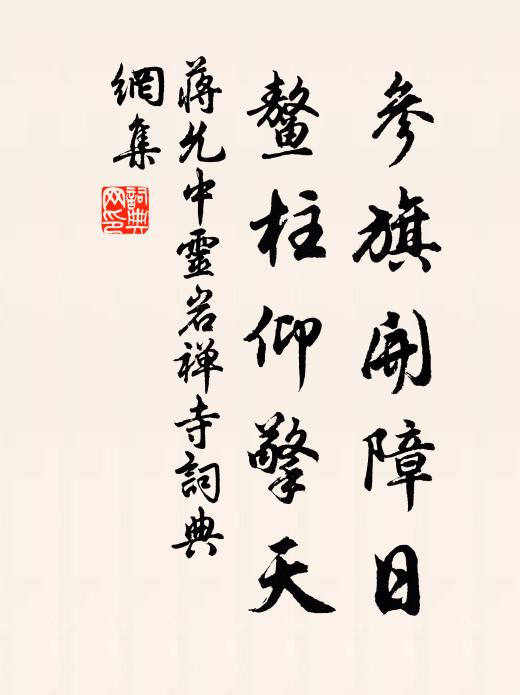 參旗開障日
鰲柱仰擎天
蔣允中靈岩禅寺詞典
網集
詞典
网印